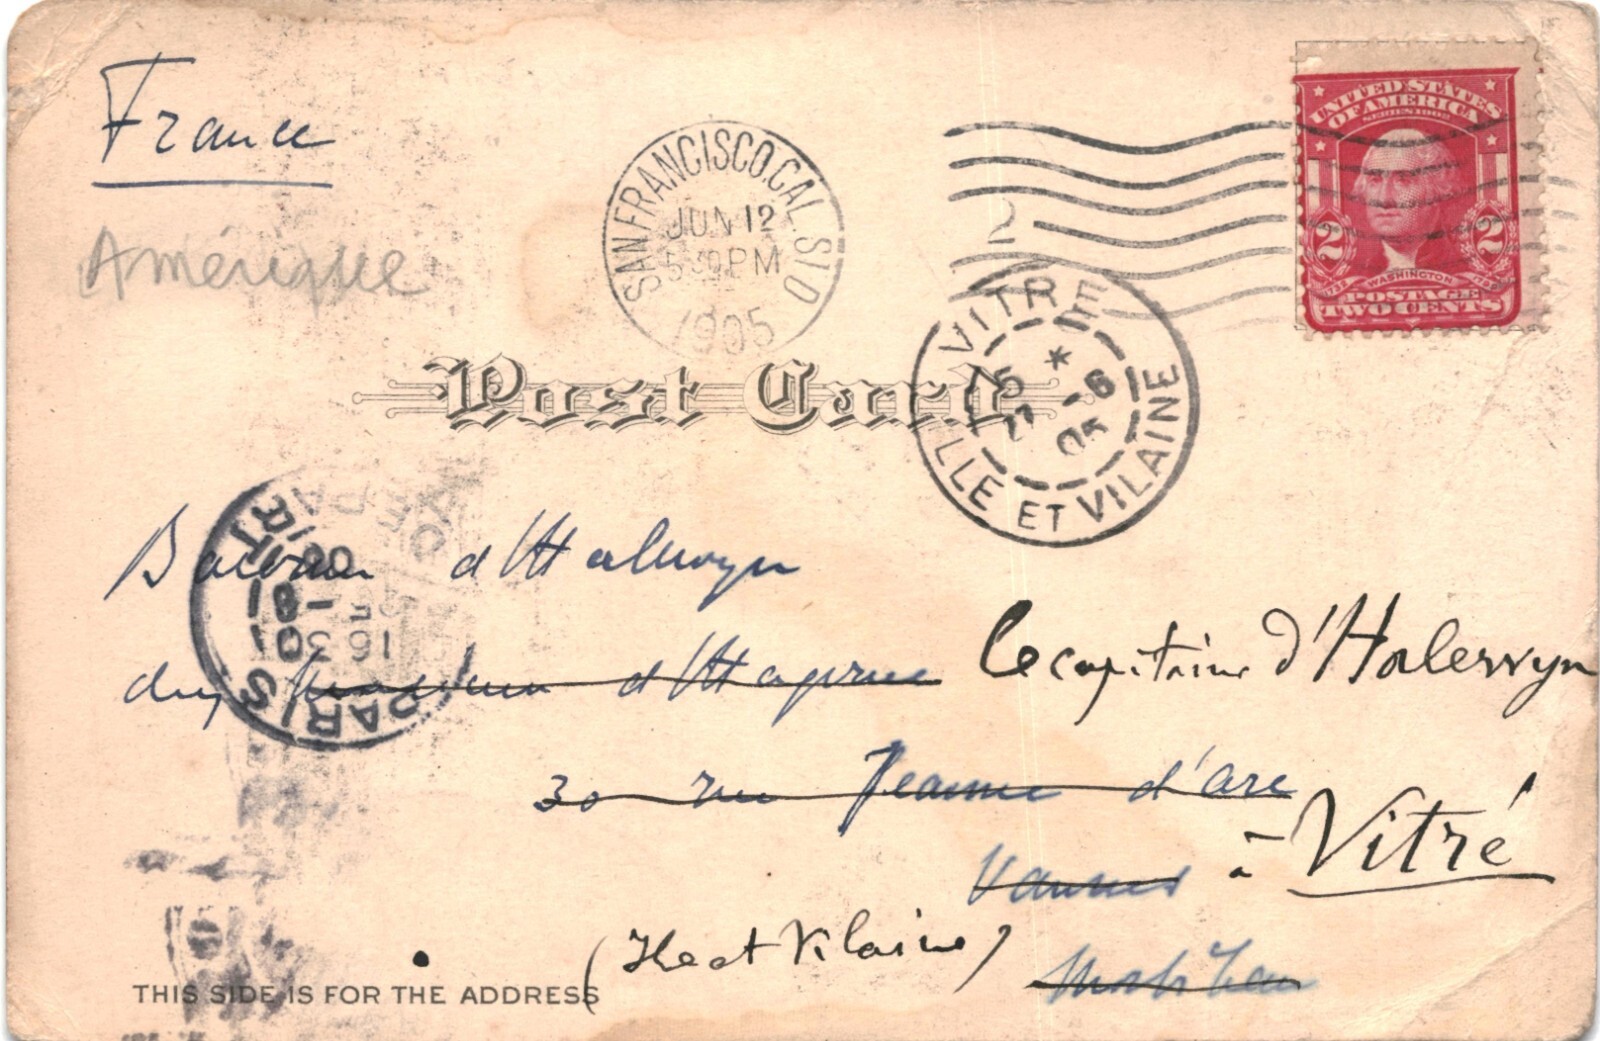 France
Amérique
SAN FRANCISCO.CAL. STA
JUN 12
5 30 PM
1905
UNITED STATES
OF AMERICA
SERIES 1902
2 2
1732 WASHINGTON 1799
POSTAGE
TWO CENTS
Post Card
VITRE
ILLE ET VILAINE
27 -6
05
Baronne d'Halewyn
PARIS
16 30
Le capitaine d'Halewyn
30 rue Jeanne d'arc
Vannes
à Vitré
(Ile et Vilaine)
Morbihan
THIS SIDE IS FOR THE ADDRESS